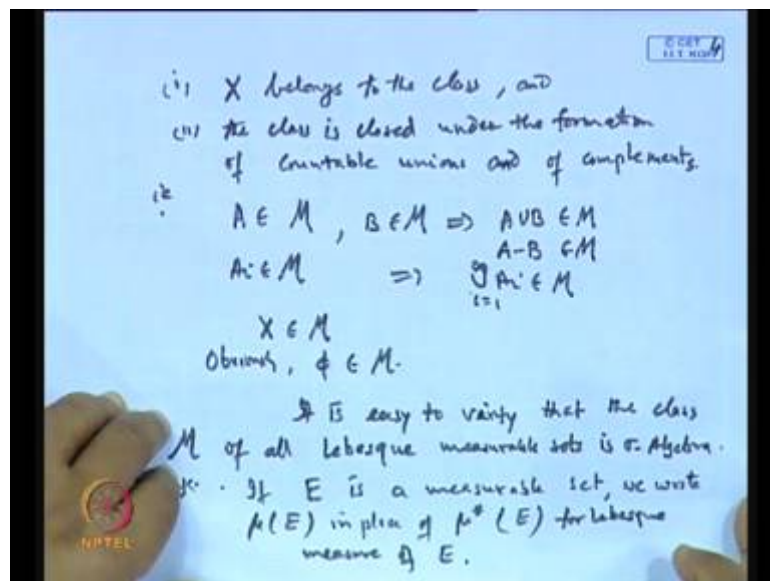 © CET
I.I.T. KGP
(i) X belongs to the class, and
(ii) the class is closed under the formation
of countable unions and of complements.
ie
A ∈ M, B ∈ M ⇒ A∪B ∈ M
A-B ∈ M
Ai ∈ M ⇒ ∪ Ai ∈ M
i=1
X ∈ M
Obviously, ϕ ∈ M.
It is easy to verify that the class
M of all Lebesgue measurable sets is σ-Algebra.
If E is a measurable set, we write
μ(E) in place of μ*(E) for Lebesgue
measure of E.
NPTEL